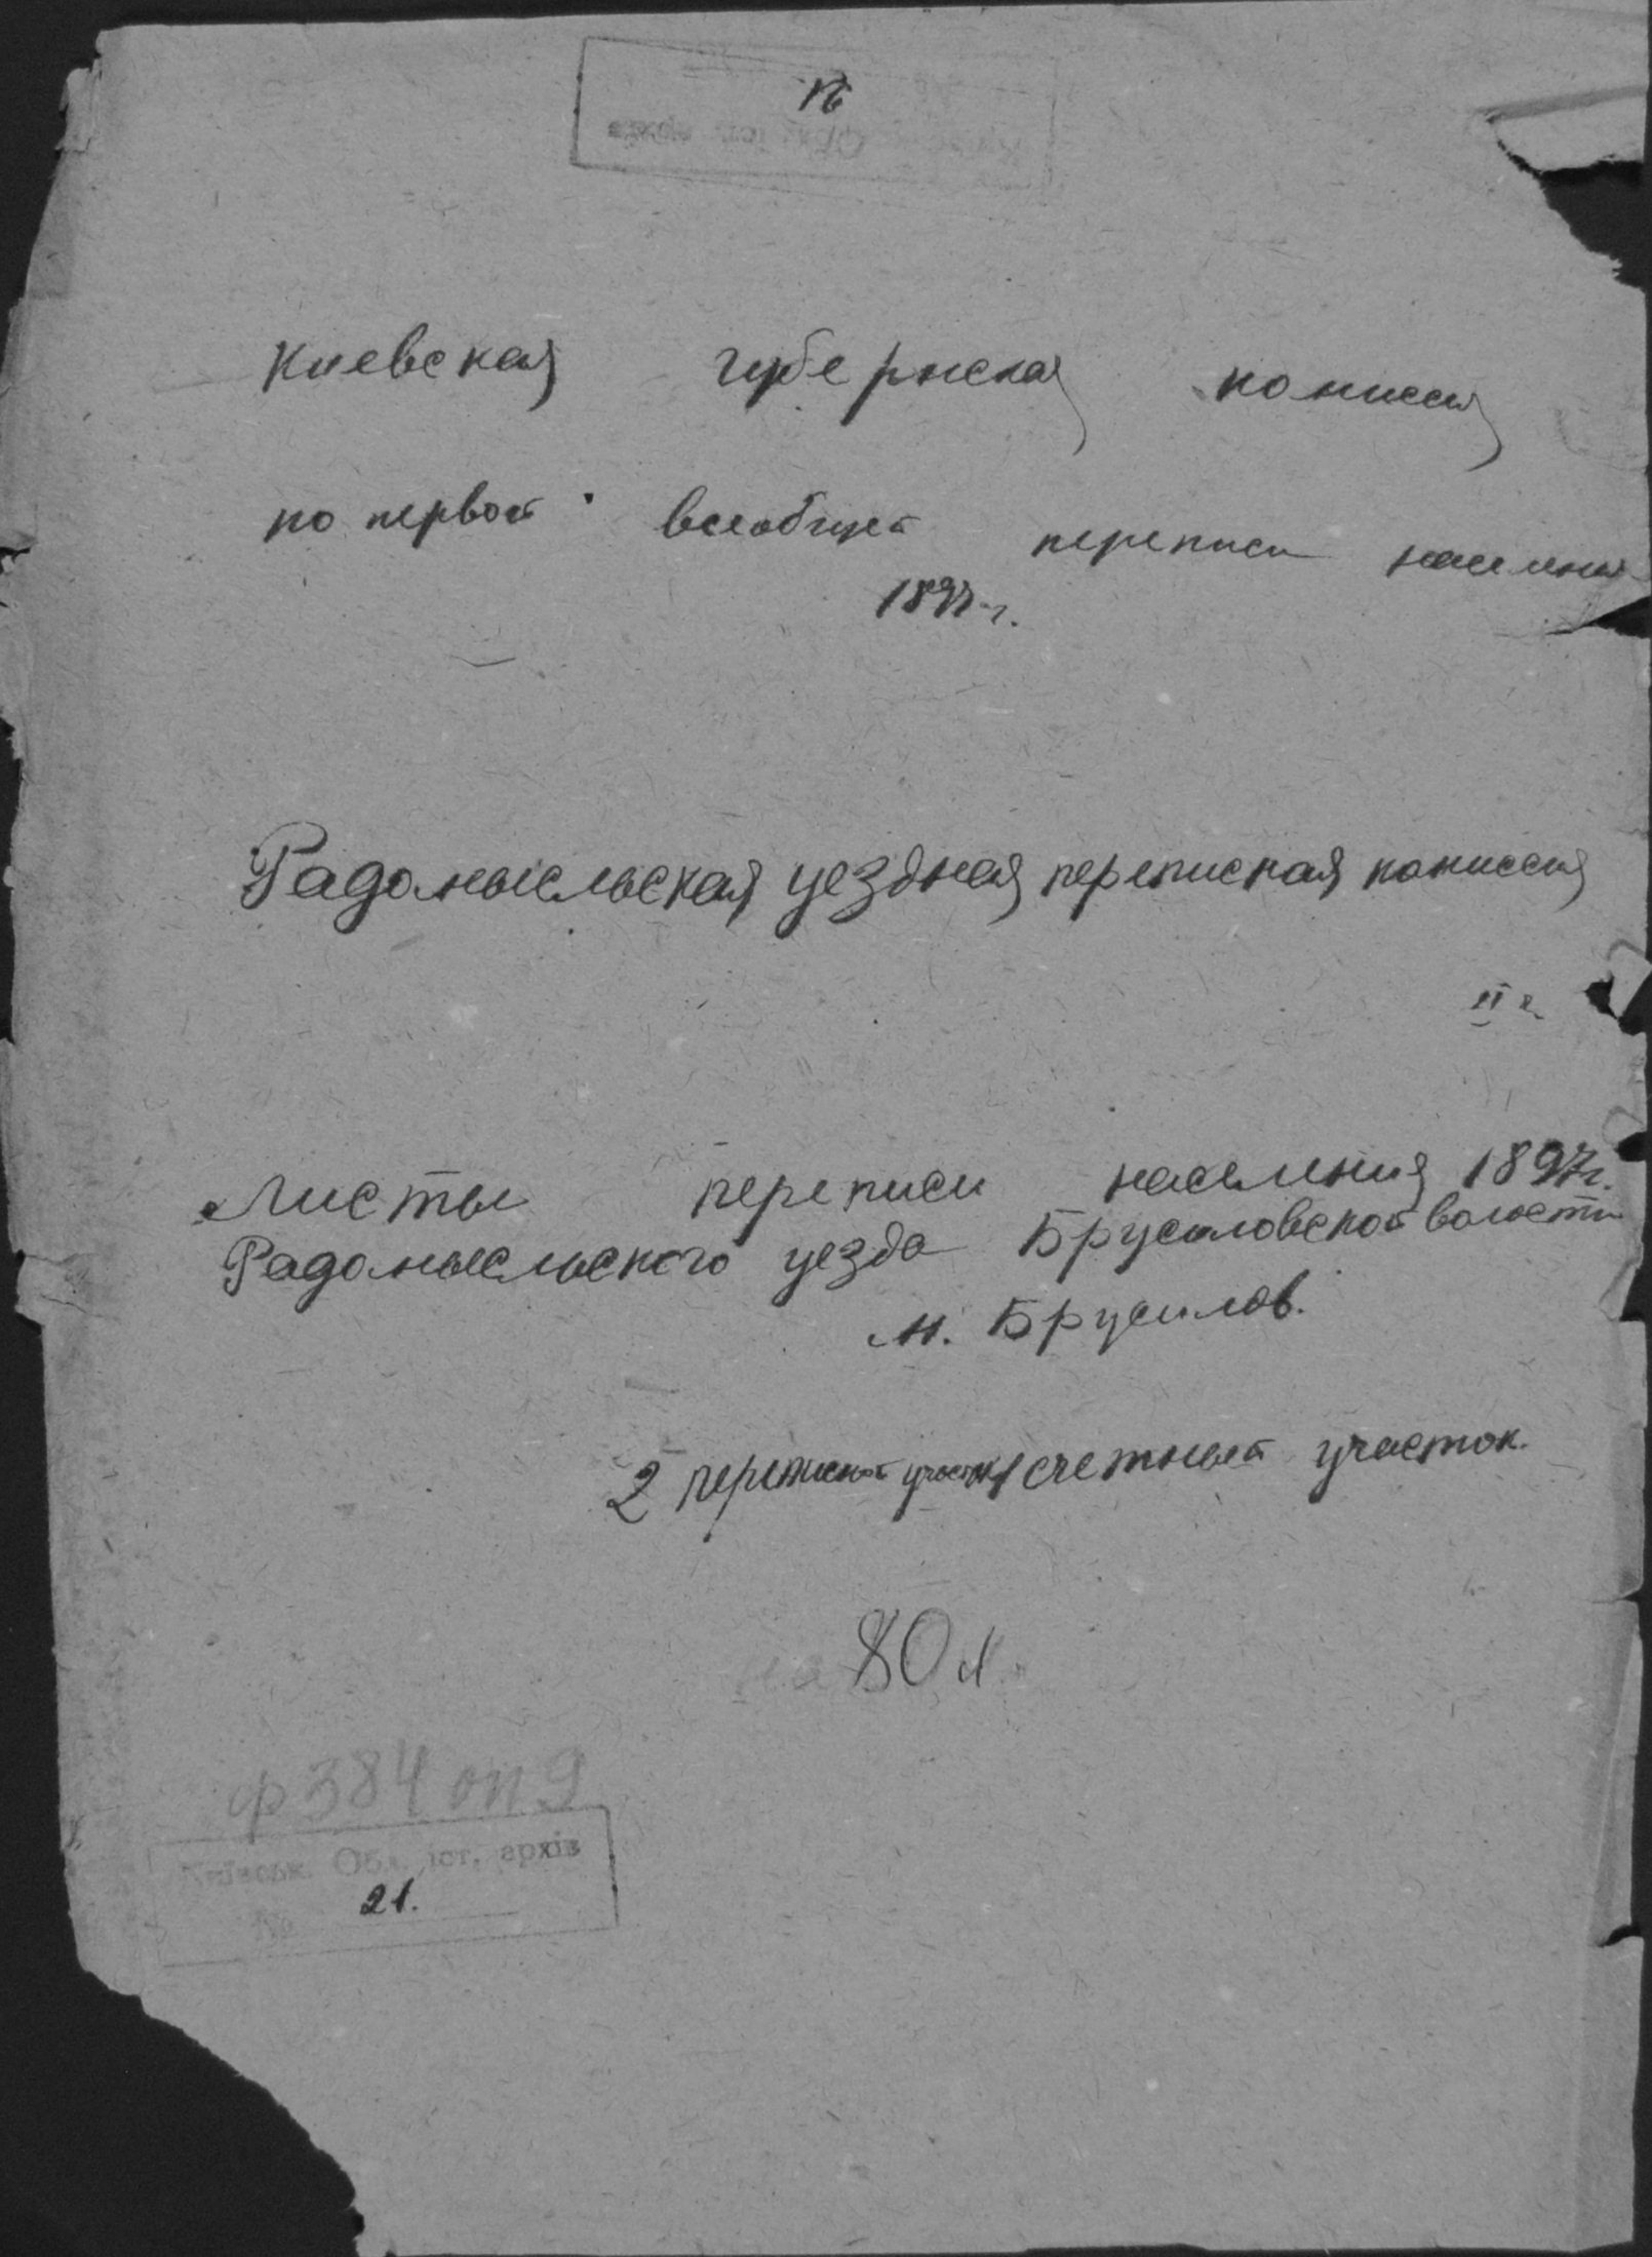 16
Киевская губернская комиссия
по первой всеобщей переписи населения
1897 г.
Радомысльская уездная переписная комиссия
Листы переписи населения 1897 г.
Радомысльского уезда Брусиловской волости
м. Брусилов.
2 переписной участок 1 счетный участок.
80 л.
ф 384 оп 9
Київськ. Обл. іст. архів
№ 21.